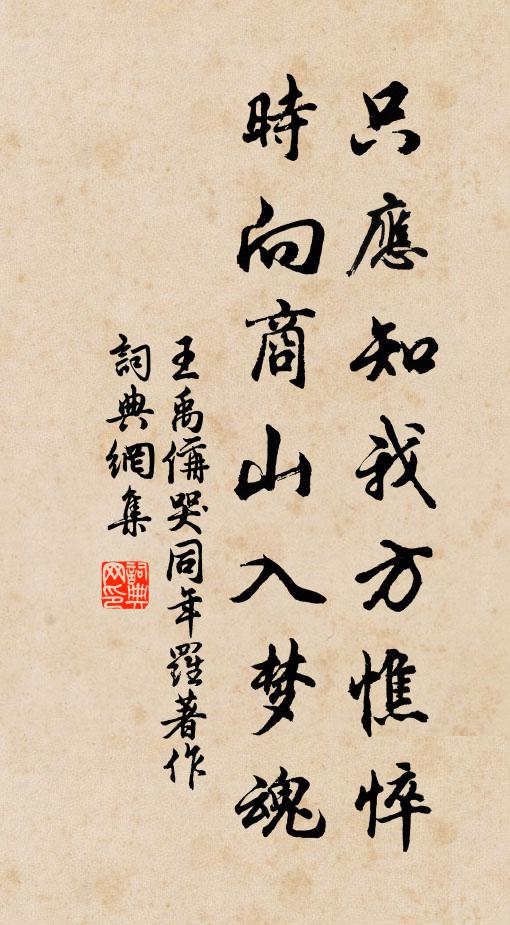 只應知我方憔悴
時向商山入梦魂
王禹偁哭同年羅著作
詞典網集
詞典网印